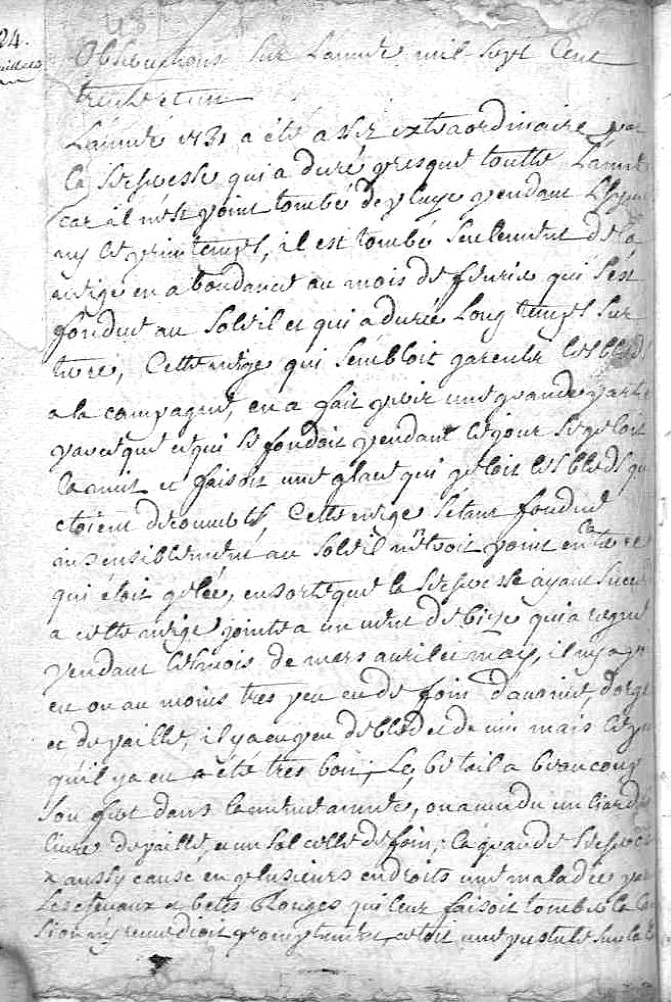 24.
Observations sur L'année mil sept Cent
trente et un
L'année 1731 a été assez extraordinaire par
la secheresse qui a duré presque toutte L'année
car il n'est point tombé de pluye pendant L'hyver
ny le printemps, il est tombé seulement de la
neige en abondance au mois de fevrier qui s'est
fondue au soleil et qui a durée Long temps sur
terre, Cette neige qui sembloit garentir les bleds
a la campagne, en a fait perir une grande partie
parce que ce qui se fondoit pendant le jour se geloit
la nuit et faisoit une glace qui geloit les bleds qui
etoient decouverts, Cette neige setant fondue
insensiblement au soleil n'entroit point en la terre
qui étoit gelée, ensorte que la secheresse ayant succedé
a cette neige jointe a un vent de bize qui a regné
pendant les mois de mars avril et may, il n'y a point
eu ou au moins tres peu eu de foin d'avoine, d'orge
et de paille, il y a eu peu de bled et de vin mais le peu
qu'il y a eu a été tres bon; Le betail a beaucoup
souffert dans la meme année, on a vendu un liard la
livre de paille, et un sol celle de foin; la grande secheresse
a aussy causé en plusieurs endroits une maladie parmi
Les chevaux et betes Rouges qui leur faisoit tomber la langue
si on n'y remedioit promptement, cetoit une pustule sur la